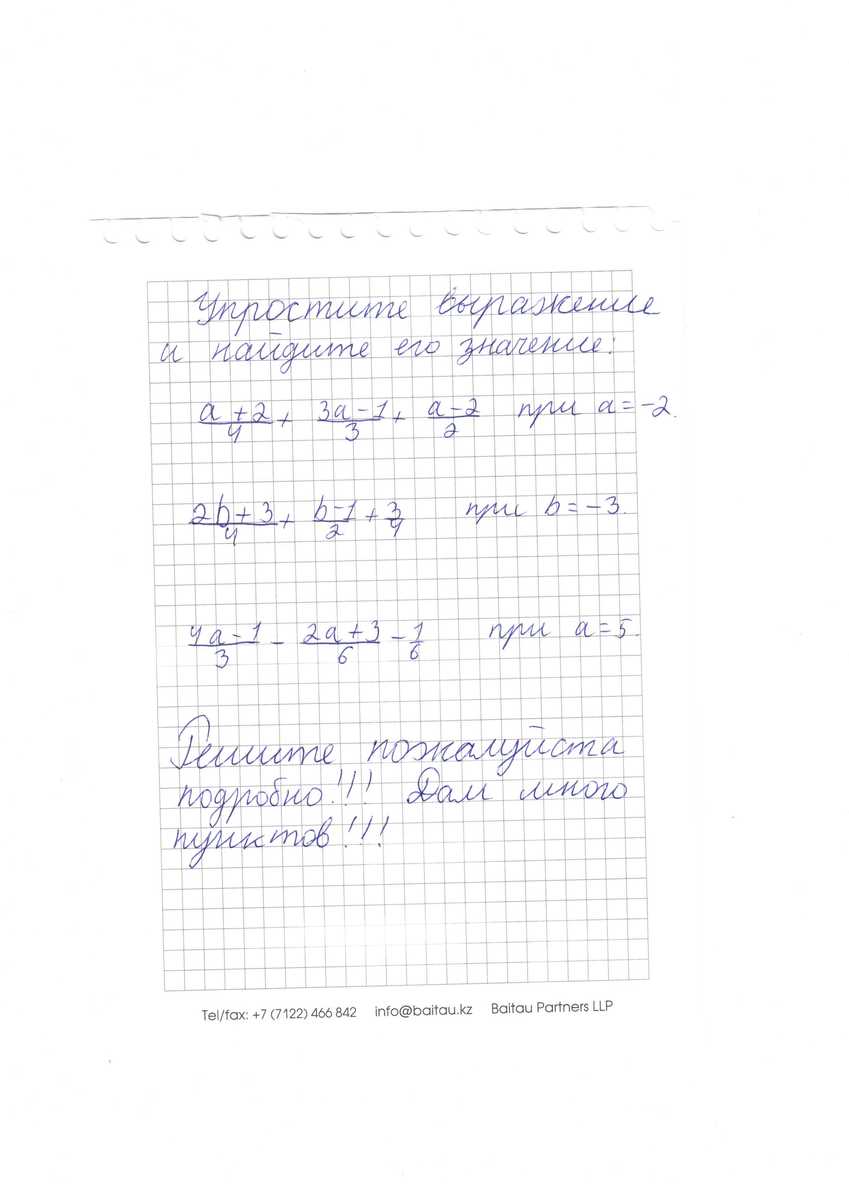 Упростите выражение
и найдите его значение:
a+2/4 + 3a-1/3 + a-2/2 при a=-2.
2b+3/4 + b-1/2 + 3/4 при b=-3.
4a-1/3 - 2a+3/6 - 1/6 при a=5.
Решите пожалуйста
подробно!!! Дам много
пунктов!!!
Tel/fax: +7 (7122) 466 842 info@baitau.kz Baitau Partners LLP